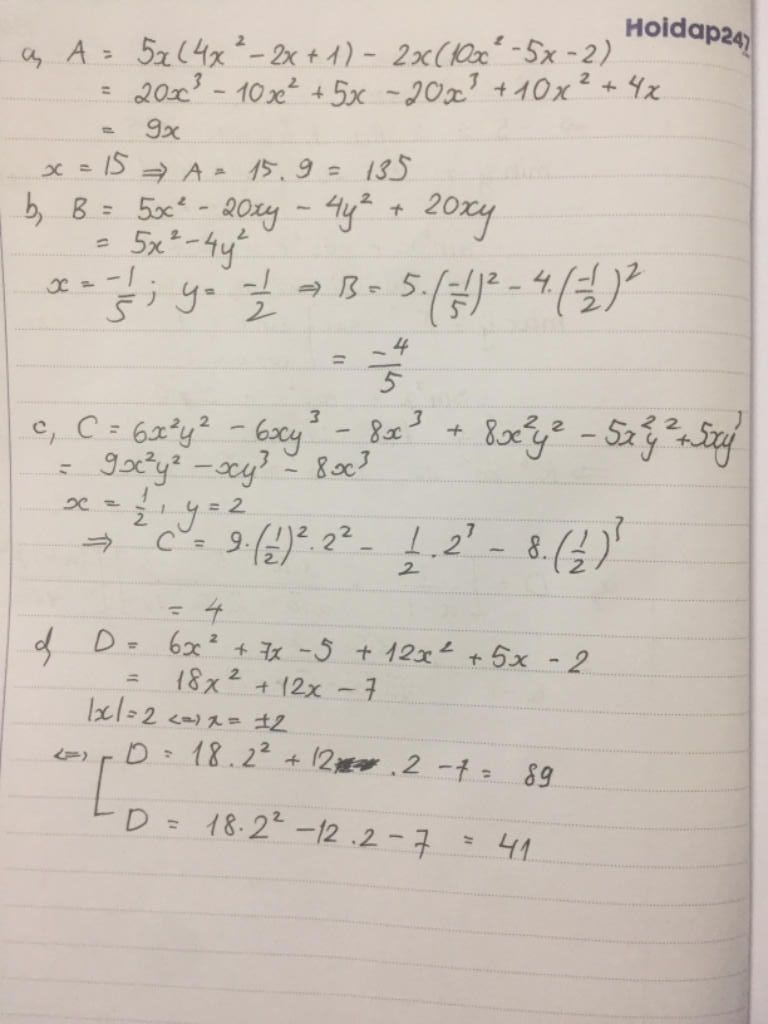 Hoidap247
a, A = 5x(4x² - 2x + 1) - 2x(10x² - 5x - 2)
= 20x³ - 10x² + 5x - 20x³ + 10x² + 4x
= 9x
x = 15 => A = 15.9 = 135
b, B = 5x² - 20xy - 4y² + 20xy
= 5x² - 4y²
x = -1/5; y = -1/2 => B = 5.(-1/5)² - 4.(-1/2)²
= -4/5
c, C = 6x²y² - 6xy³ - 8x³ + 8x²y² - 5x²y² + 5xy³
= 9x²y² - xy³ - 8x³
x = 1/2, y = 2
=> C = 9.(1/2)².2² - 1/2.2³ - 8.(1/2)³
= 4
d, D = 6x² + 7x - 5 + 12x² + 5x - 2
= 18x² + 12x - 7
|x| = 2 <=> x = ±2
<=> [ D = 18.2² + 12 .2 - 7 = 89
D = 18.2² - 12.2 - 7 = 41